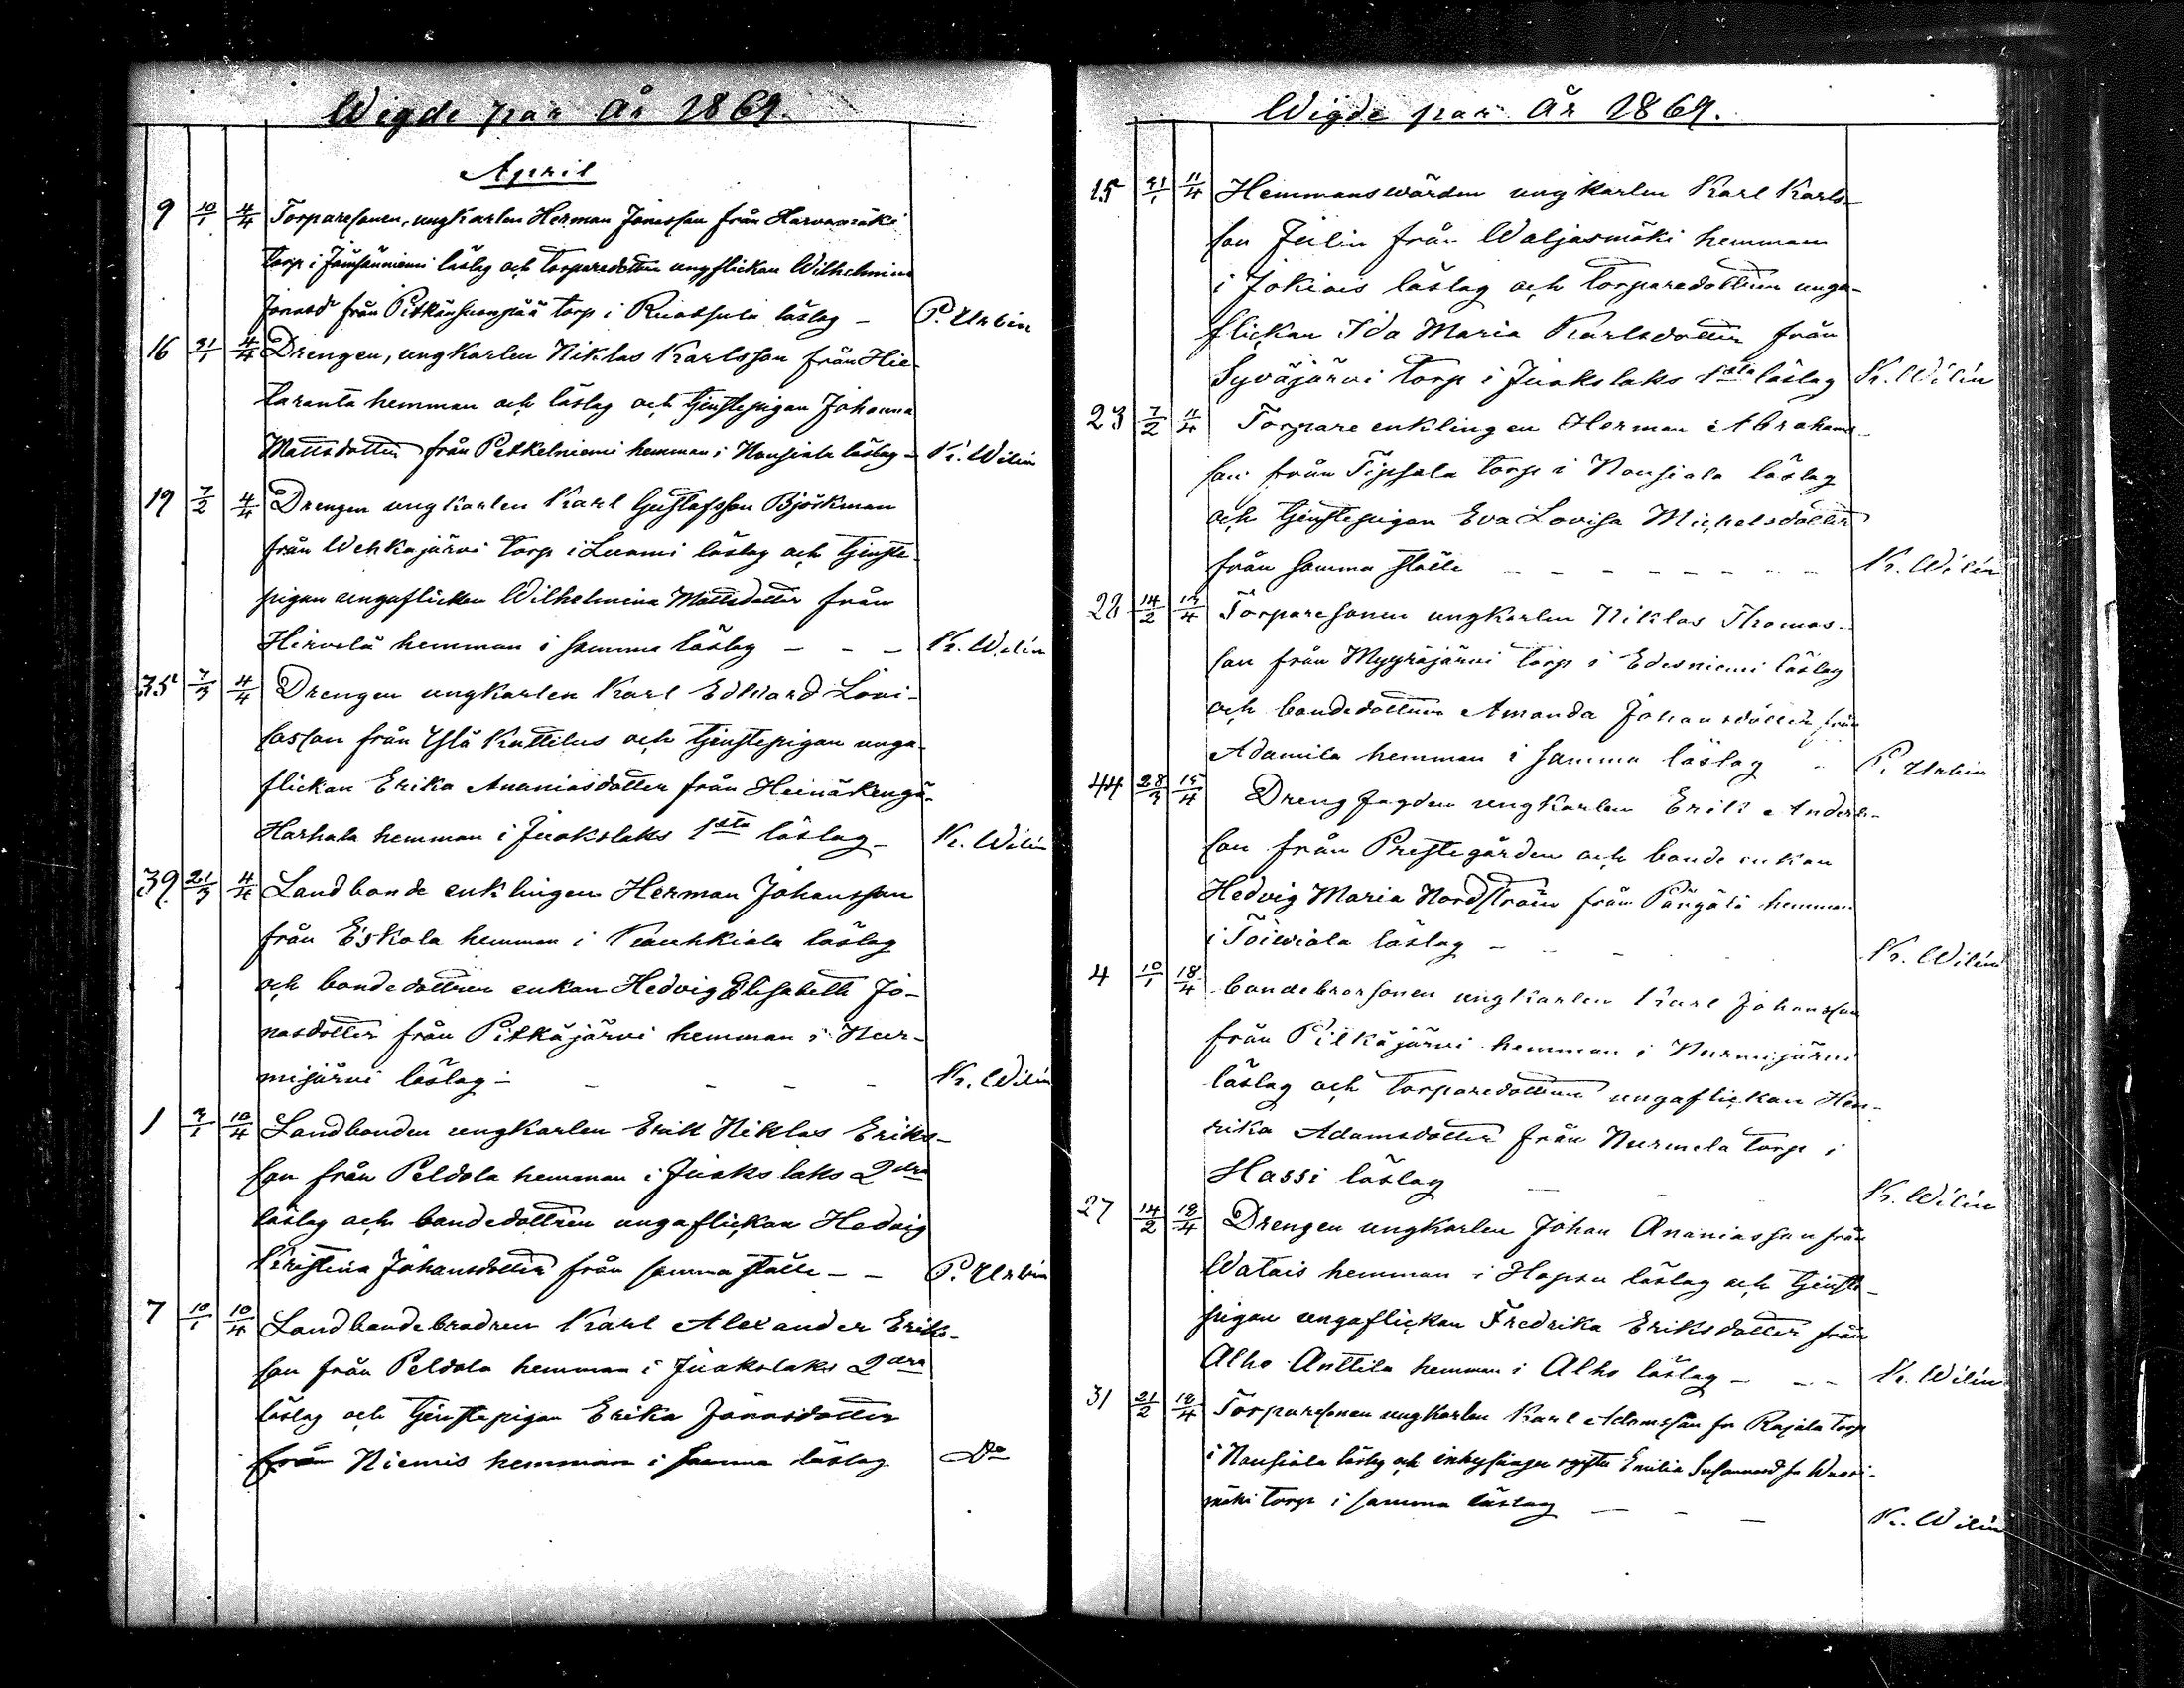 Wigde par År 1869.
April
9 10/1 4/4 Torparesonen, ungkarlen Herman Jonasson från Harvamäki
torp i Jämsänniemi läslag och torparedottren ungaflickan Wilhelmina
Jonasd från Pitkänsuonpää torp i Ruotsula läslag – P. Urbin
16 31/1 4/4 Drengen, ungkarlen Niklas Karlsson från Hie-
taranta hemman och läslag och tjenstepigan Johanna
Mattsdotter från Petkelniemi hemman i Nousiala läslag – Kr. Wilén
19 7/2 4/4 Drengen ungkarlen Karl Gustafsson Björkman
från Wehkajärvi torp i Luomi läslag och tjenste-
pigan ungaflickan Wilhelmina Mattsdotter från
Hirvelä hemman i samma läslag – – – Kr. Wilén
35 7/3 4/4 Drengen ungkarlen Karl Edward Lovi-
sasson från Ylä Knuttilus och tjenstepigan unga-
flickan Erika Ananiasdotter från Heinäkengä-
Harhala hemman i Juokslaks 1sta läslag – Kr. Wilén
39 21/3 4/4 Landbonde enklingen Herman Johansson
från Eskola hemman i Kauhkiala läslag
och bondedottren enkan Hedvig Elisabeth Jo-
nasdotter från Pitkäjärvi hemman i Nur-
mijärvi läslag – – – – – Kr. Wilén
1 3/1 10/4 Landbonden ungkarlen Erik Niklas Eriks-
son från Peldola hemman i Juokslaks 2dra
läslag och bondedottren ungaflickan Hedvig
Kristina Johansdotter från samma ställe – – P. Urbin
7 10/1 10/4 Landbondebrodren Karl Alexander Eriks-
son från Peldola hemman i Juokslaks 2dra
läslag och tjenstepigan Erika Jonasdotter
från Niemis hemman i samma läslag Do
Wigde par År 1869.
15 31/1 11/4 Hemmanswärden ungkarlen Karl Karls-
son Julin från Waljasmäki hemman
i Jokiois läslag och torparedottren unga-
flickan Ida Maria Karlsdotter från
Syväjärvi torp i Juokslaks 1sta läslag Kr. Wilén
23 7/2 11/4 Torpare enklingen Herman Abrahams-
son från Tipsala torp i Nousiala läslag
och tjenstepigan Eva Lovisa Michelsdotter
från samma ställe – – – – – – – – Kr. Wilén
28 14/2 15/4 Torparesonen ungkarlen Niklas Thomas-
son från Myyräjärvi torp i Edesniemi läslag
och bondedottren Amanda Johansdotter från
Adamila hemman i samma läslag – P. Urbin
44 28/3 15/4 Drengfogden ungkarlen Erik Anders-
son från Prestegården och bonde enkan
Hedvig Maria Nordström från Pängälä hemman
i Toiwiala läslag – – – – Kr. Wilén
4 10/1 18/4 bondebrorsonen ungkarlen Karl Johansson
från Pitkäjärvi hemman i Nurmijärvi
läslag och torparedottren ungaflickan Hen-
rika Adamsdotter från Nurmela torp i
Hassi läslag – – – Kr. Wilén
27 14/2 18/4 Drengen ungkarlen Johan Ananiasson från
Watais hemman i Hopsu läslag och tjenste-
pigan ungaflickan Fredrika Eriksdotter från
Alho Anttila hemman i Alho läslag – – – Kr. Wilén
31 21/2 18/4 Torparesonen ungkarlen Karl Adamsson fr Rajala torp
i Nousiala läslag och inhysinge ogifta Emilia Susannasd fr Wuori-
mäki torp i samma läslag – – – Kr. Wilén